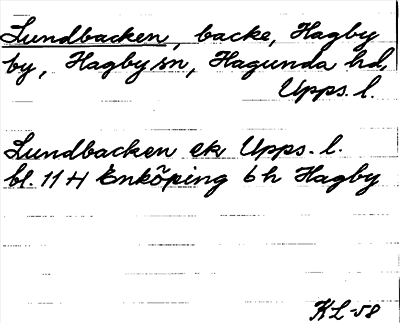 Lundbacken, backe, Hagby
by, Hagby sn, Hagunda hd,
Upps. l.
Lundbacken ek Upps. l.
bl. 11 H Enköping 6 h Hagby
KL-58